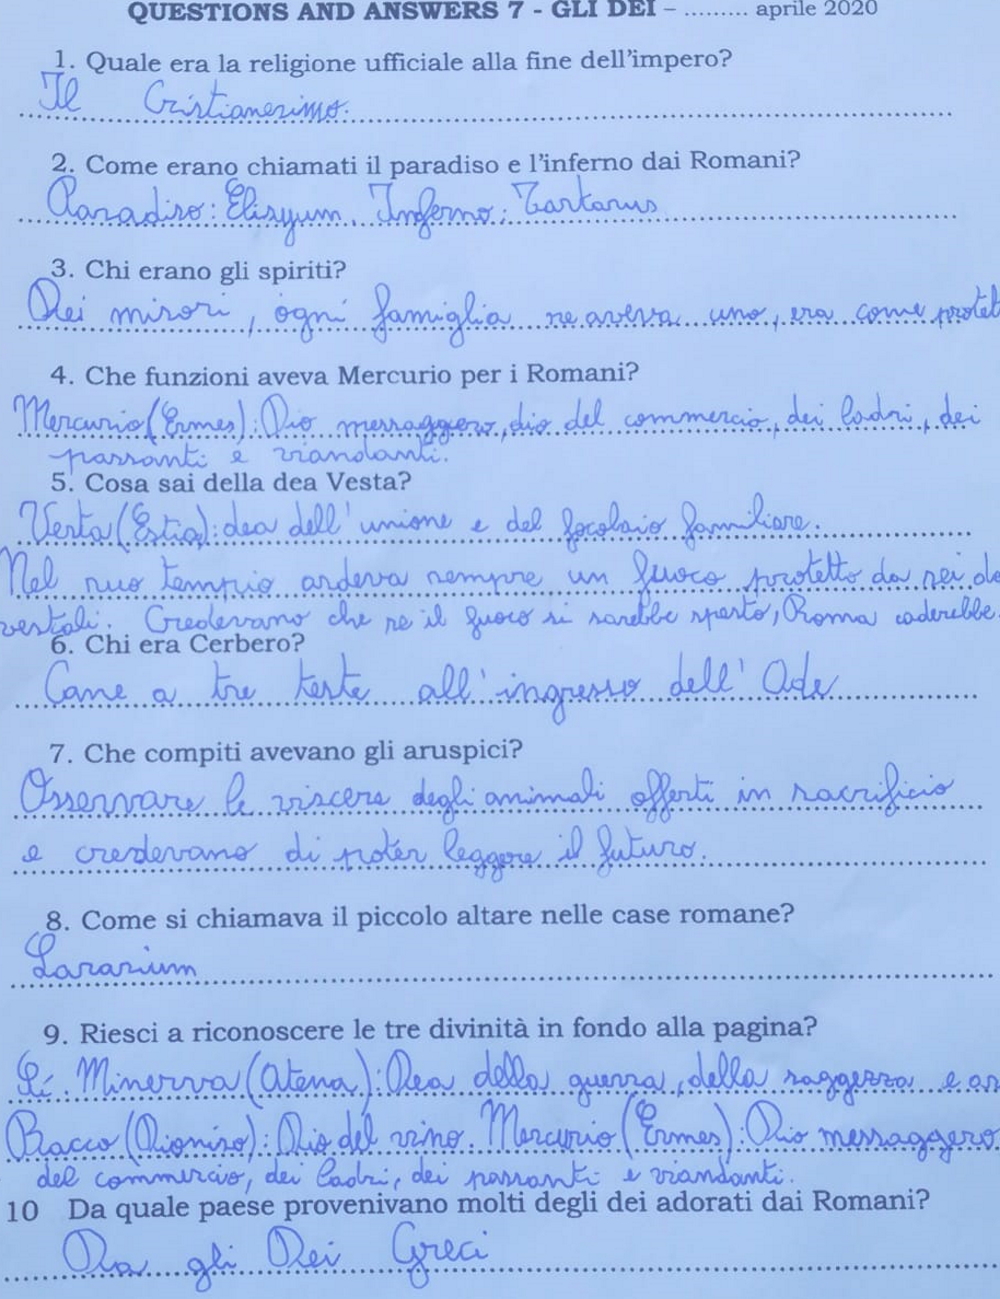 QUESTIONS AND ANSWERS 7 - GLI DEI – ......... aprile 2020
1. Quale era la religione ufficiale alla fine dell'impero?
Il Cristianesimo.
2. Come erano chiamati il paradiso e l'inferno dai Romani?
Paradiso: Elisyum. Inferno: Tartarus
3. Chi erano gli spiriti?
Dei minori, ogni famiglia ne aveva uno, era come protet
4. Che funzioni aveva Mercurio per i Romani?
Mercurio (Ermes): Dio messaggero, dio del commercio, dei ladri, dei
passanti e viandanti.
5. Cosa sai della dea Vesta?
Vesta (Estia): dea dell'unione e del focolaio familiare.
Nel suo tempio ardeva sempre un fuoco protetto da sei
vestali. Credevano che se il fuoco si sarebbe spento, Roma caderebbe.
6. Chi era Cerbero?
Cane a tre teste all'ingresso dell'Ade
7. Che compiti avevano gli aruspici?
Osservare le viscere degli animali offerti in sacrificio
e credevano di poter leggere il futuro.
8. Come si chiamava il piccolo altare nelle case romane?
Lararium
9. Riesci a riconoscere le tre divinità in fondo alla pagina?
Sì. Minerva (Atena): Dea della guerra, della saggezza e ar
Bacco (Dioniso): Dio del vino. Mercurio (Ermes): Dio messaggero
del commercio, dei ladri, dei passanti e viandanti.
10 Da quale paese provenivano molti degli dei adorati dai Romani?
Da gli Dei Greci